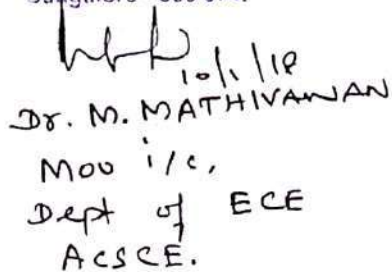 10/1/18
Dr. M. MATHIVANAN
Mou i/c,
Dept of ECE
ACSCE.